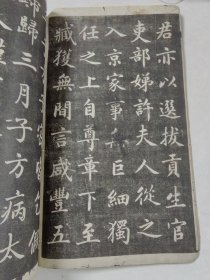 君亦以選拔貢生官
吏部娣許夫人從之
入京家事無巨細獨
任之上自尊章下至
臧獲無間言咸豐五
歸三月子方病太